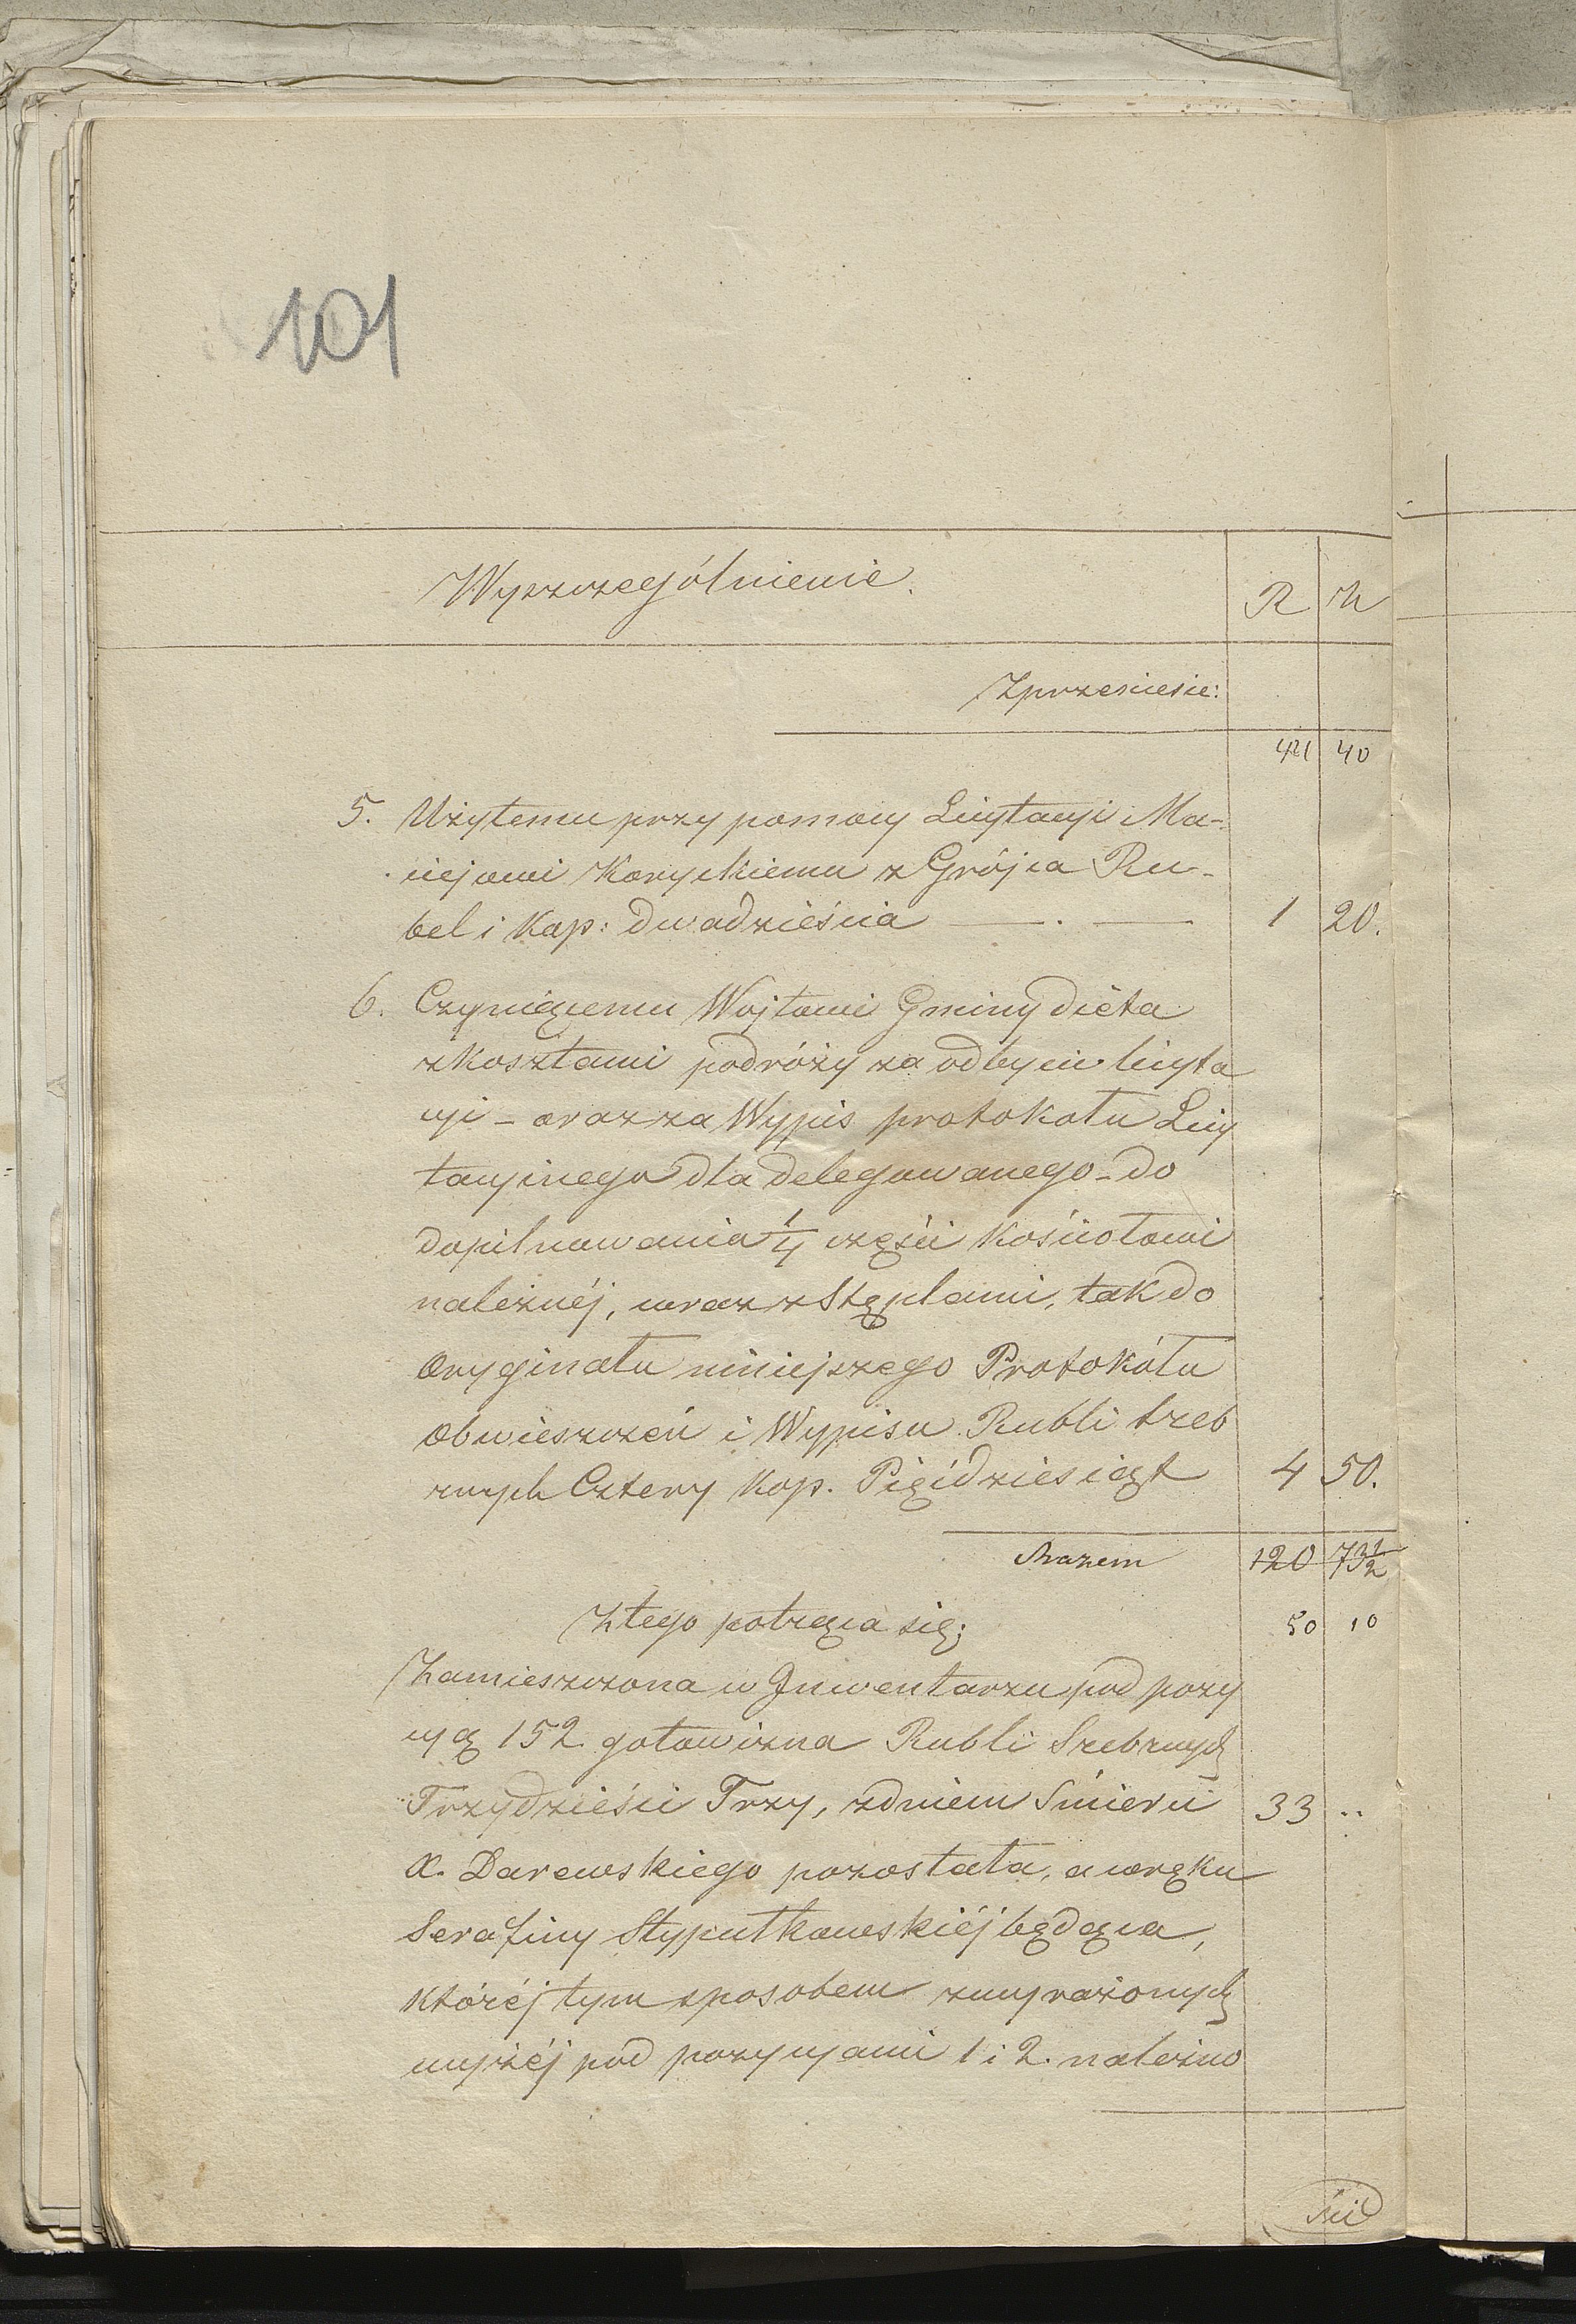 101
Wyszczególnienie. R K
Zprzeniesie:
421 40
5. Użytemu przy pomocy Licytacyi Ma-
ciejowi Koryckiemu z Grójca Ru-
bel i Kop: dwadzieścia — . — 1 20.
6. Czyniącemu Wojtowi Gminy dieta
zkosztami podróży za odbycie licyta
cyi – oraz za Wypis protokołu Licy
tacyinego dla delegowanego – do
dopilnowania 1/4 części Kościołowi
należnéj, wraz z Stęplami, tak do
Oryginału niniejszego Protokółu
Obwieszczeń i Wypisu Rubli Sreb
rnych Cztery Kop. Pięćdziesiąt 4 50.
Razem 120 73½
Ztego potrąca się; 50 10
Zamieszczona w Inwentarzu pod pozy
cyą 152 gotowizna Rubli Srebrnych
Trzydzieści Trzy, zdniem Śmierci 33 ..
X. Darewskiego pozostała, a wręku
Serafiny Stypułkowskiéj będąca,
któréj tym sposobem zwyrażonych
wyżéj pod pozycyami 1 i 2. należno
ści